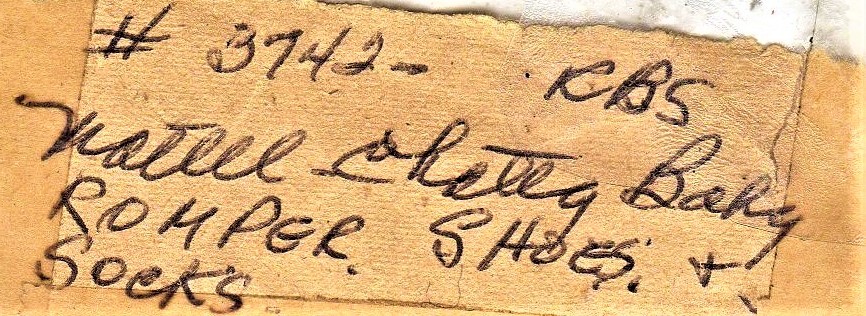 # 3742- RBS
Mattel Chatty Baby
ROMPER. SHOES. +
SOCKS